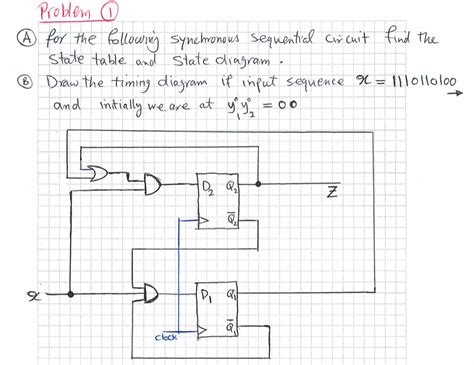 Problem ①
Ⓐ for the following synchronous sequential circuit find the
state table and state diagram.
Ⓑ Draw the timing diagram if input sequence x = 1110110100
and intially we are at y₁°y₂° = 00
D₂ Q₂
Z
Q̅₂
x
D₁ Q₁
clock
Q̅₁